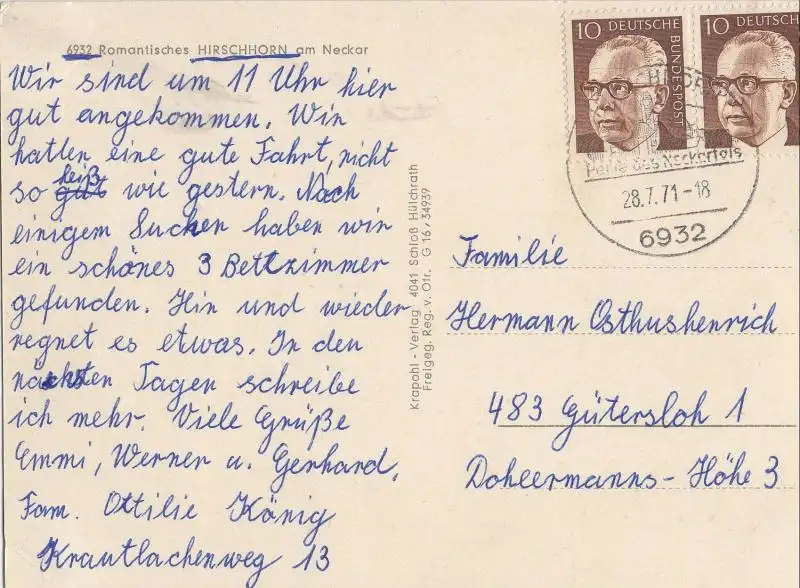 6932 Romantisches HIRSCHHORN am Neckar
Wir sind um 11 Uhr hier
gut angekommen. Wir
hatten eine gute Fahrt, nicht
so gut heiß wie gestern. Nach
einigem Suchen haben wir
ein schönes 3 Bettzimmer
gefunden. Hin und wieder
regnet es etwas. In den
nächsten Tagen schreibe
ich mehr. Viele Grüße
Emmi, Werner u. Gerhard.
Fam. Ottilie König
Krautlachenweg 13
Krapohl-Verlag 4041 Schloß Hülchrath
Freigeg. Reg. v. Ofr. G 16/34939
10 DEUTSCHE BUNDESPOST
10 DEUTSCHE
Perle des Neckartals
28.7.71-18
6932
Familie
Hermann Osthushenrich
483 Gütersloh 1
Doheermanns-Höhe 3